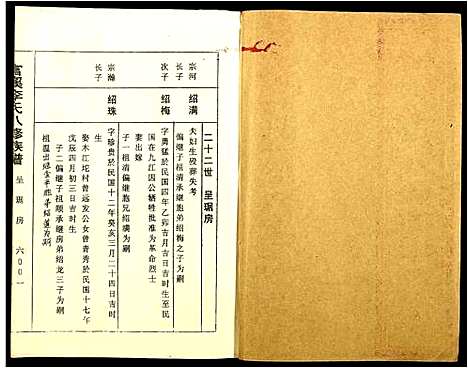 二十二世 呈琚房
宗河
长子 绍满
夫妇生殁葬失考
偏继子祖清承继胞弟绍梅之子为嗣
次子 绍梅
字勇猛於民国四年乙卯吉月吉日吉时生至民
国在九江因公牺牲批准为革命烈士
妻出嫁
子一祖清偏继胞兄绍满为嗣
宗瀚
长子 绍珠
字珍贵於民国十二年癸亥三月二十四日吉时
生
娶木江坨村曾远发公女曾青秀於民国十七年
戊辰四月初三日吉时生
子二偏继子祖顺承继房弟绍龙三子为嗣
富溪李氏八修族谱
呈琚房
六00一